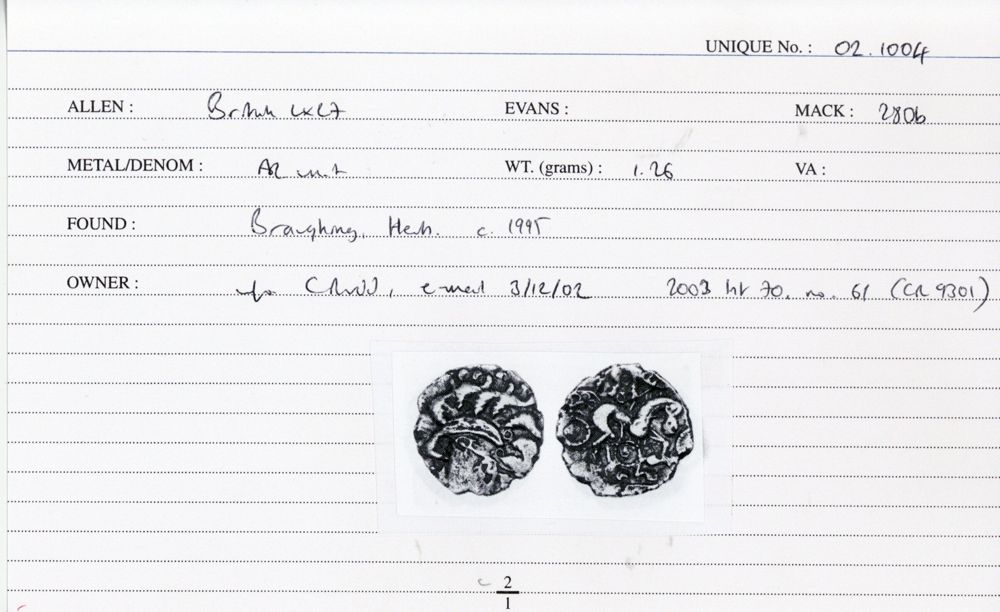 UNIQUE No. : 02.1004
ALLEN : British LXLX EVANS : MACK : 280b
METAL/DENOM : AR unit WT. (grams) : 1.26 VA :
FOUND : Braughing, Herts. c. 1995
OWNER : CRudd, e-mail 3/12/02 2003 list 70. no. 61 (CR 9301)
2
1